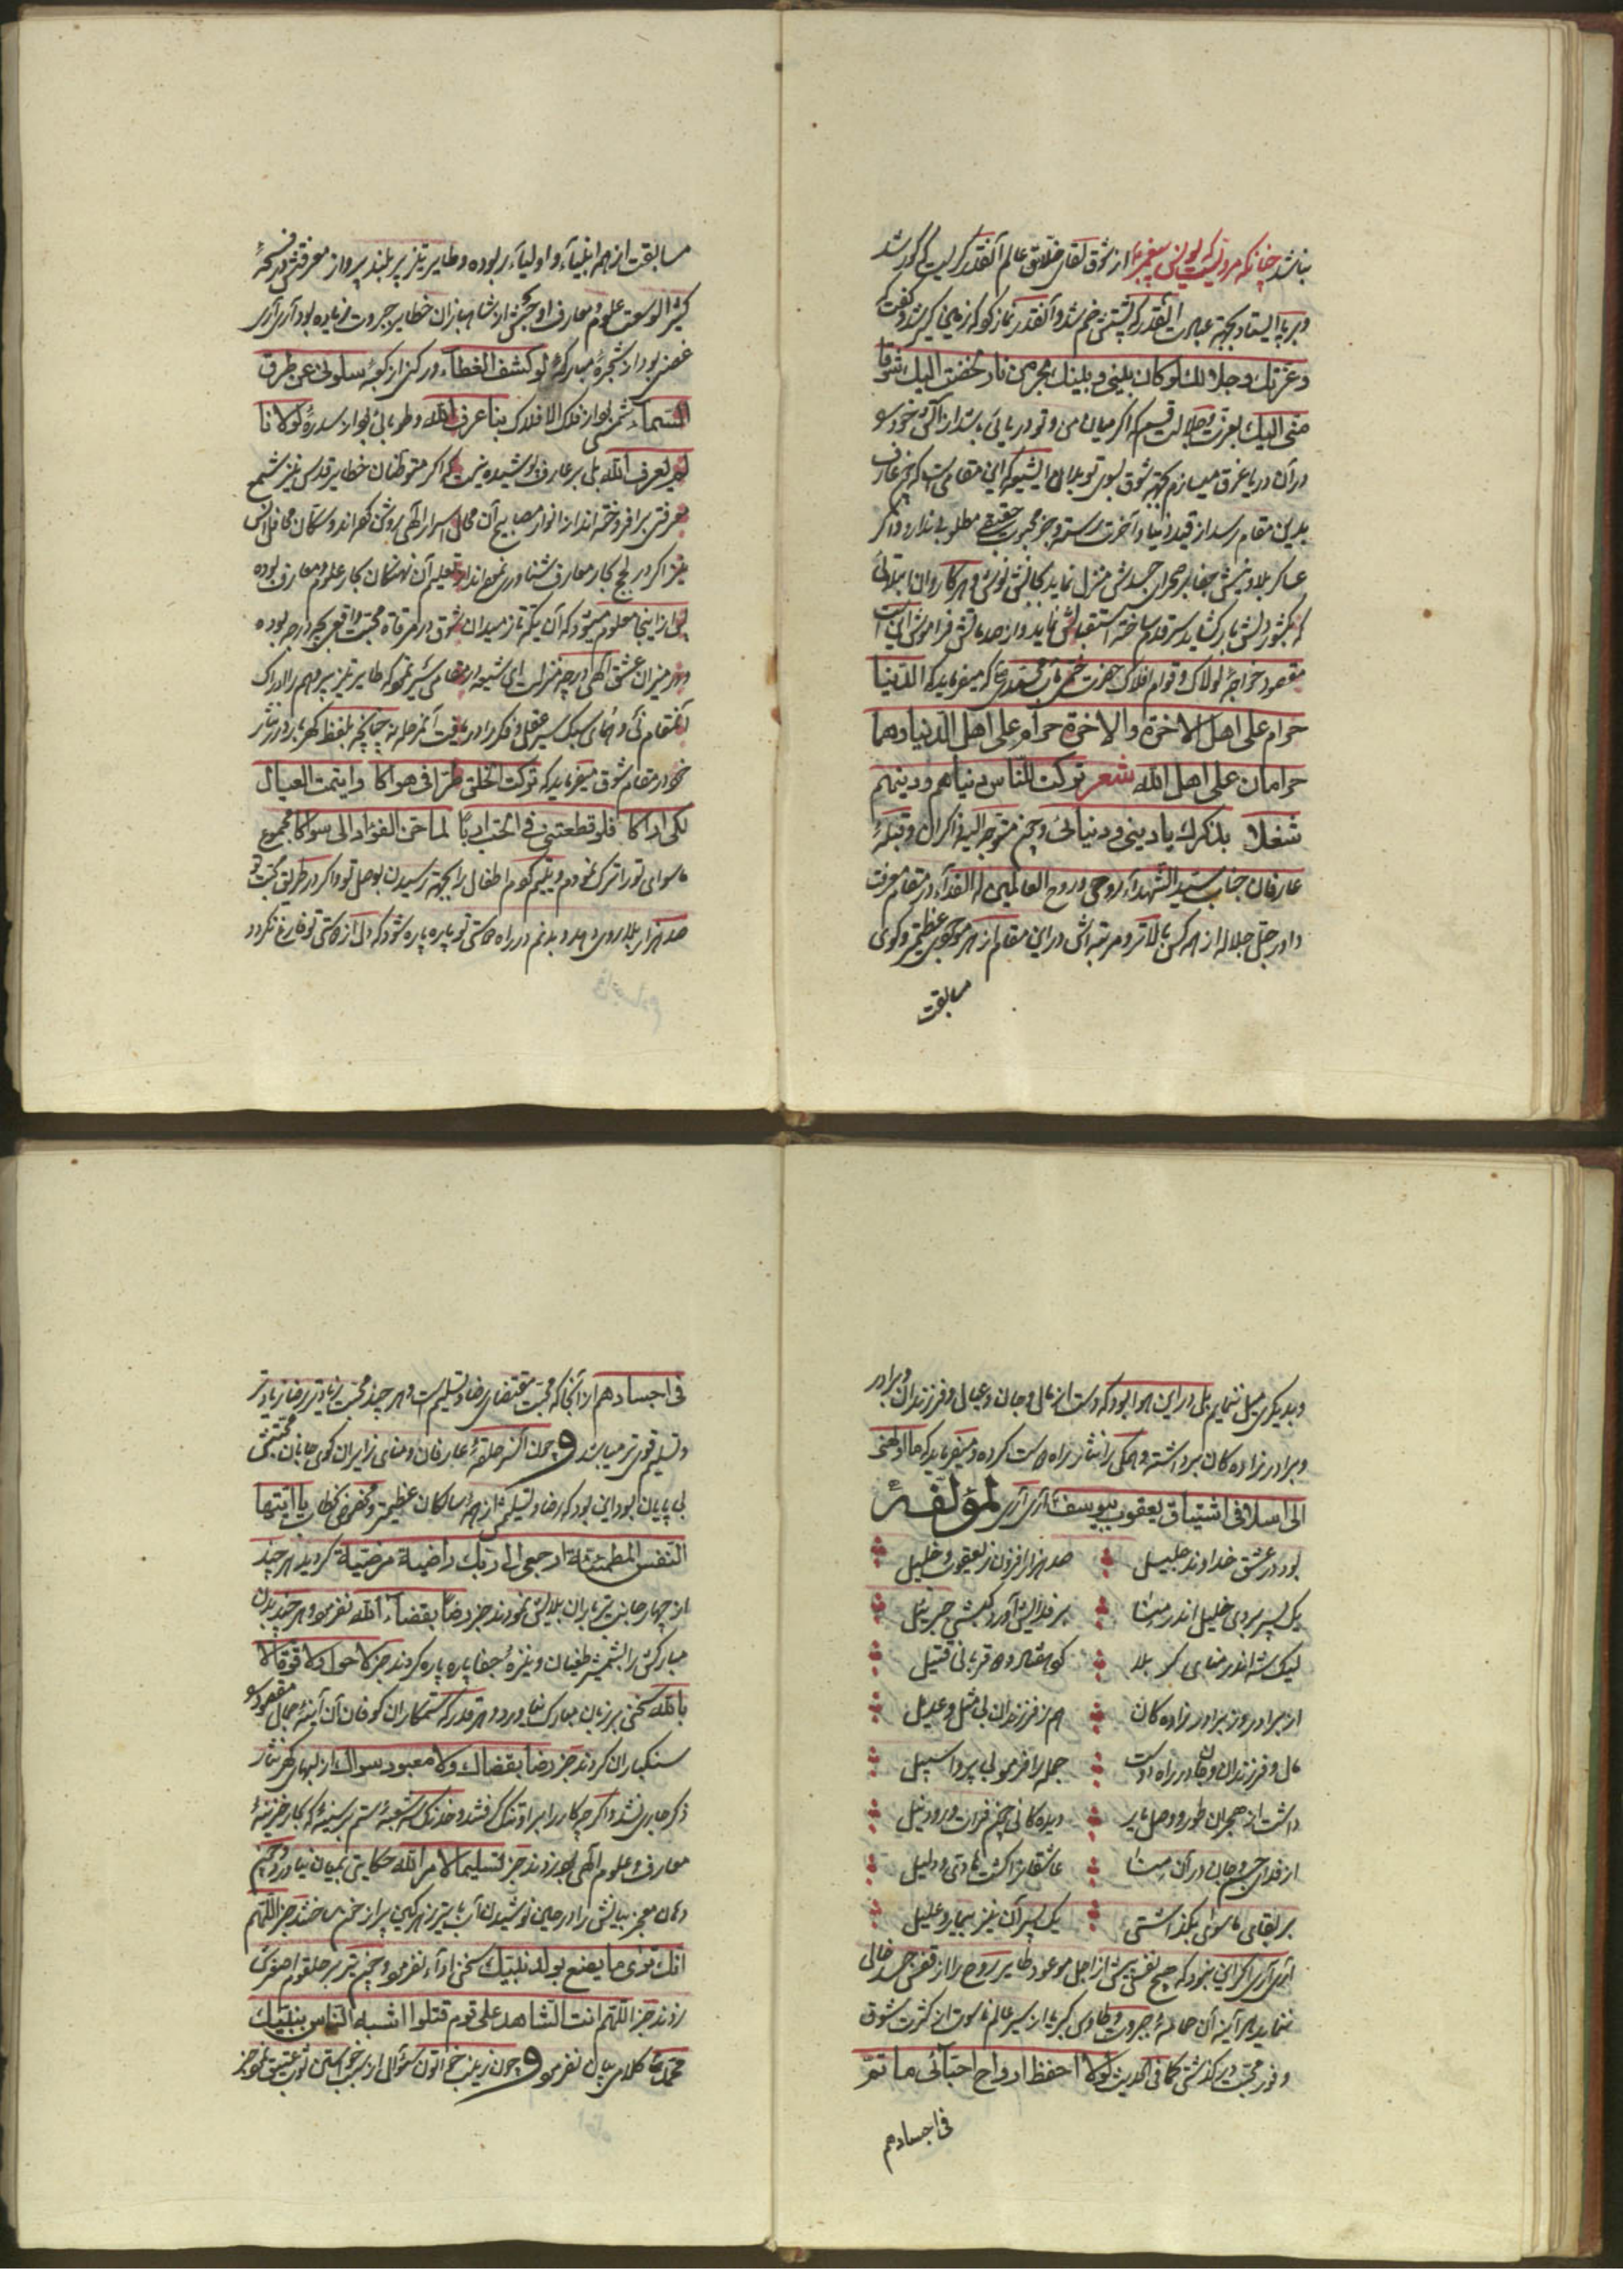 نباشد چنانکه مرویست که یونس پیغمبر از شوق لقای خلاق عالم آنقدر گریست که کور شد
و بر پا ایستاد بجهة عبادت آنقدر که پشتش خم شد و آنقدر نماز کرد که زمین گیر شد و گفت که
و عزتک و جلالک لو کان بینی و بینک بحر من نار لخضت الیک شوقا
منی الیک بعزت و جلالت قسم که اگر میان من و تو دریائی باشد از آتش خود را
در آن دریا غرق میسازم بجهة شوق بسوی تو بدان ای شیعه که این مقامی است که چون عارف
باین مقام رسد از قید دنیا و آخرت رسته و جز محبوب حقیقی مطلوبی ندارد و اگر
عساکر بلا و جیش جفا بر صحرای جسدش منزل نماید بجانش نوشد و هر کاروان ابتلائی
که بکشور دلش بار گشاید سر قدم ساخته استقبالش نماید و از صدماتش فراموشی این است
مقصود خواجه لولاک و قوام افلاک حضرت ختمی مآب محمد ص که میفرماید که الدنیا
حرام علی اهل الاخرة والاخرة حرام علی اهل الدنیا وهما
حرامان علی اهل الله شعر ترکت للناس دنیاهم ودینهم
شغلا بذکرک یا دینی و دنیائی و چون متوجه الیه ذاکران و قبله
عارفان جناب سید الشهداء روحی و روح العالمین له الفداء در مقام معرفت
داور جل جلاله از همه کس بالاتر و مرتبه اش در این مقام از هر موجودی عظیمتر و گوی
مسابقت
مسابقت از همه انبیاء و اولیاء ربوده و طایر تیز پر بلند پرواز معرفتش در فسحهٔ
کثیر الوسعت علوم و معارف او بیش از شاهبازان خطایر جبروت زیاده بود آری آری
غصنی بود از شجرهٔ مبارکهٔ لو کشف الغطاء و رکنی از کعبهٔ سلونی عن طرق
السماء شمسی بود از فلک الافلاک بنا عرف الله و طوبائی بود از سدرهٔ لولانا
لم یعرف الله بلی بر عارف پوشیده نیست که اگر متوطنان خطایر قدس نیز شمع
معرفتی برافروخته اند از انوار مصابیح آن محال اسرار الهی روشن کرده اند و ساکنان محافل انس
نیز اگر در لجج بحار معارف شناوری نموده اند از تعلیم آن نهنگان بحار علوم و معارف بوده
پس از اینجا معلوم میشود که آن یکه تاز میدان شوق در مرقاة محبت واقعی بچه درجه بوده
و در میزان عشق الهی در چه منزلت ای شیعه در مقامی سیر نموده که طایر تیز پر وهم را ادراک
آنمقام نی و همای سبک سیر عقل و فکر را دریافت آنمرحله نه چنانچه بلفظ گهربار درر نثار
خود در مقام شوق میفرماید که ترکت الخلق طرا فی هواکا و ایتمت العیال
لکی اراکا فلو قطعتنی فی الحب اربا لما حن الفؤاد الی سواکا مجموع
ماسوای تو را ترک نمودم و یتیم کردم اطفال را بجهة رسیدن بوصل تو و اگر در طریق محبت تو
صد هزار بلا بر وی دهد و بدنم در راه دوستی تو پاره پاره شود که دل از دوستی تو فارغ نگردد
و بدیگری میل ننمایم بل در این هوا بود که دست از مال و جان و عیال و فرزندان و برادر
و برادر زاده کان برداشته و همگی را نثار راه دوست کرده و میفرماید که ما اولهنی
الی اسلافی اشتیاق یعقوب بیوسف آری آری لمؤلفهٔ
بود در عشق خداوند جلیل صد هزار افزون ز یعقوب و خلیل
یک پسر بردی خلیل اندر منا بر فدایش آورد کبشی جبرئیل
لیک شه اندر منای کربلا کرد هفتاد و دو قربانی قتیل
از برادر وز برادر زاده کان هم ز فرزندان بی مثل و عدیل
مال و فرزندان و جان در راه دوست جمله را فرمود بی پروا سبیل
داشت از هجران طور و وصل یار دیده کانی چون فرات و رود نیل
از فدای جسم و جان در آن منا عاشقان را گشت هادی و دلیل
بر بقای ماسوی بگذاشتی یک پسر آن نیز بیمار و علیل
آری آری اگر این نبود که هیچ نفس پیش از اجل موعود طایر روح را از قفس جسد خالی
ننماید هر آینه آن حمامهٔ جبروت و طاوس کبریا از سیر عالم ناسوت از کثرت شوق
و فور محبت در گذشتی کما فی الحدیث لولا احفظ ارواح احبائی ما تمر
فی اجسادهم
فی اجسادهم از آنجا که محبت مقتضای رضا و تسلیم است و هر چند محبت زیادتر رضا زیادتر
و تسلیم قوی تر میباشد و چون آنسر حلقهٔ عارفان و منای زایران کوی جانان محبتش
بی پایان بود این بود که رضا و تسلیمش از همه سالکان عظیمتر و مخصوص خطاب یا ایتها
النفس المطمئنة ارجعی الی ربک راضیة مرضیة گردید هر چند
از چهار جانب تیر باران بلایش نمودند جز رضا بقضاء الله نفرمود و هر چند بدن
مبارکش را بشمشیر طغیان و نیزهٔ جفا پاره پاره کردند جز لا حول ولا قوة الا
بالله سخنی بر زبان مبارک نیاورد و هر قدر که ستمکاران کوفان آن آینهٔ جمال مقصود را
سنگباران کردند جز رضا بقضائک ولا معبود سواک از لبهای گهر نثار
ذکر جاری نشد و اگر چه کار را بر او تنگ گرفتند و خدنگ سه شعبهٔ ستم بر سینهٔ که بحار خزینهٔ
معارف و علوم الهی بود زدند جز تسلیما لامر الله حکایتی بمیان نیاورد و چون
دهان معجز بیانش را در حین نوشیدن آب با تیر زهر کین پر از خون ساختند جز اللهم
انک تری ما یصنع بولد نبیک سخنی اداء نفرمود و چون تیر بر حلقوم اصغرش
زدند جز اللهم انت الشاهد علی قوم قتلوا اشبه الناس بنبیک
محمد ص کلامی بیان نفرمود و چون زینب خواتون سؤال از سبب خواستن ثوب عتیق نمود جز